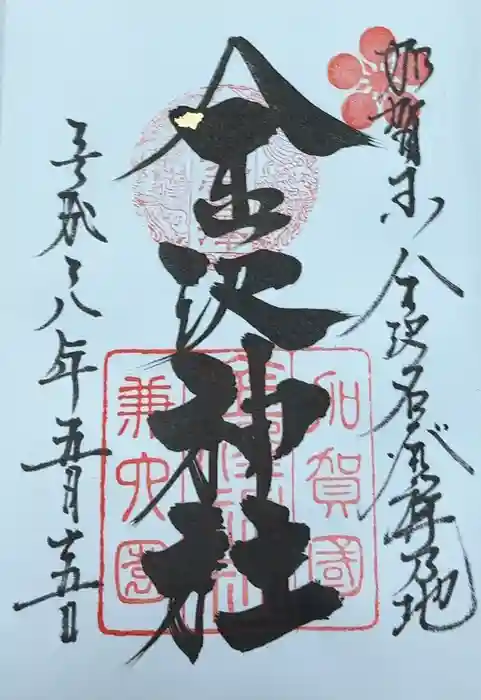 加賀
金沢名発祥乃地
金沢神社
平成二八年五月
五日
加賀國
兼六園